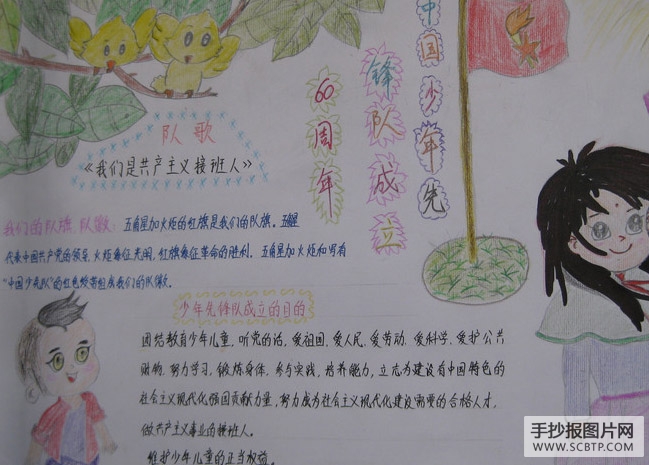 中国少年先
锋队成立
60周年
队歌
《我们是共产主义接班人》
我们的队旗 队徽：五角星加火炬的红旗是我们的队旗。五角星
代表中国共产党的领导，火炬象征光明，红旗象征革命的胜利。五角星加火炬和写有
“中国少先队”的红色绶带组成我们的队徽。
少年先锋队成立的目的
团结教育少年儿童，听党的话，爱祖国，爱人民，爱劳动，爱科学，爱护公共
财物，努力学习，锻炼身体，参与实践，培养能力，立志为建设有中国特色的
社会主义现代化强国贡献力量，努力成为社会主义现代化建设需要的合格人才，
做共产主义事业的接班人。
维护少年儿童的正当权益。
手抄报图片网
WWW.SCBTP.COM